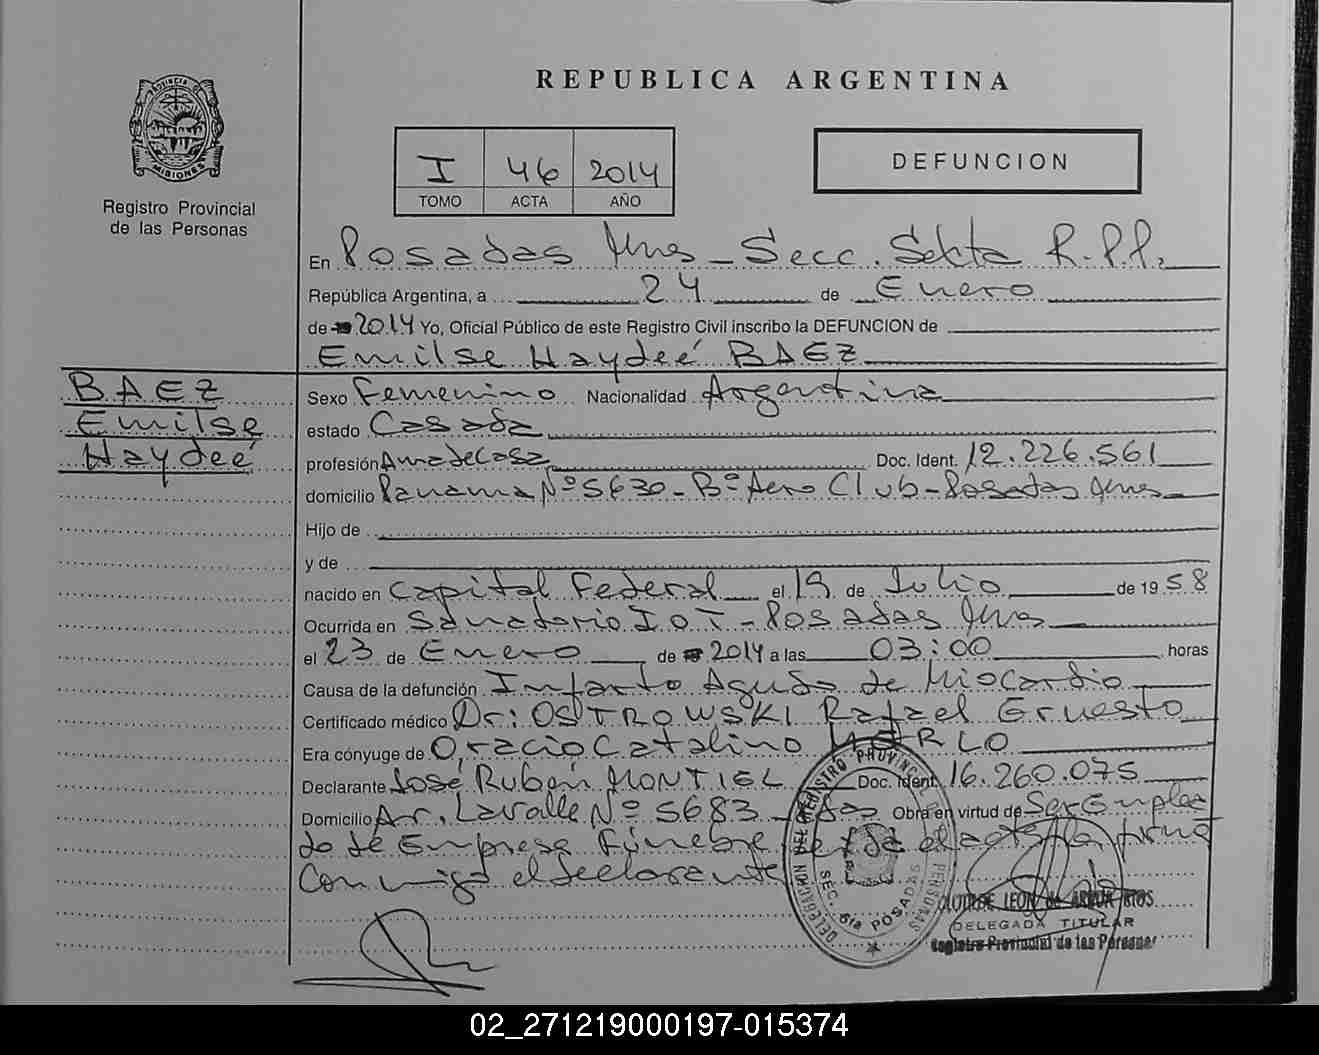 REPUBLICA ARGENTINA
PROVINCIA DE MISIONES
Registro Provincial
de las Personas
I 46 2014
TOMO ACTA AÑO
DEFUNCION
En Posadas Mnes - Secc. Sexta R.P.P.
República Argentina, a 24 de Enero
de 2014 Yo, Oficial Público de este Registro Civil inscribo la DEFUNCION de
Emilse Haydeé BAEZ
BAEZ
Emilse
Haydeé
Sexo Femenino Nacionalidad Argentina
estado Casada
profesión Ama de Casa Doc. Ident. 12.226.561
domicilio Panama Nº 5630 - Bº Aero Club - Posadas Mnes
Hijo de
y de
nacido en Capital Federal el 19 de Julio de 1958
Ocurrida en Sanatorio I O T - Posadas Mnes
el 23 de Enero de 2014 a las 03:00 horas
Causa de la defunción Infarto Agudo de Miocardio
Certificado médico Dr: OSTROWSKI Rafael Ernesto
Era cónyuge de Oracio Catalino
Declarante José Rubén MONTIEL Doc. Ident. 16.260.075
Domicilio Av. Lavalle Nº 5683 - Pdas Obra en virtud de Ser Emplea
do de Empresa Fúnebre el acta la firma
Conmigo el declarante
DELEGACION DEL REGISTRO PROVINCIAL PERSONAS
SEC. 6ta POSADAS
LEON de RIOS
DELEGADA TITULAR
Registro Provincial de las Personas
02_271219000197-015374